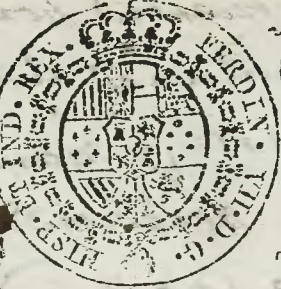 FERDIN. VII. D. G.
HISP. ET IND. REX.